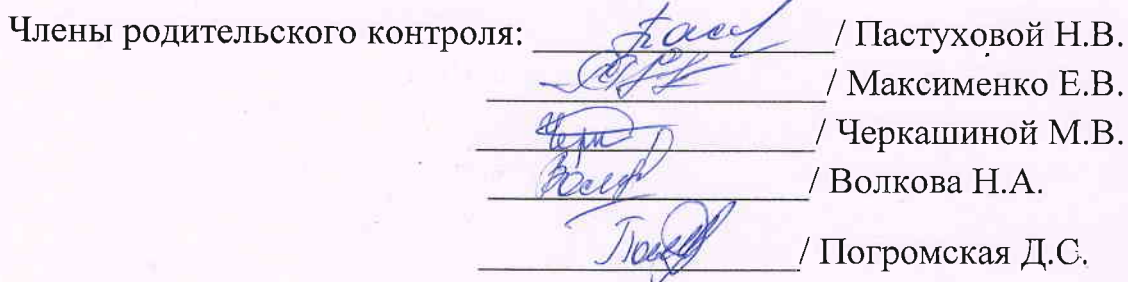 Члены родительского контроля: / Пастуховой Н.В.
/ Максименко Е.В.
/ Черкашиной М.В.
/ Волкова Н.А.
/ Погромская Д.С.